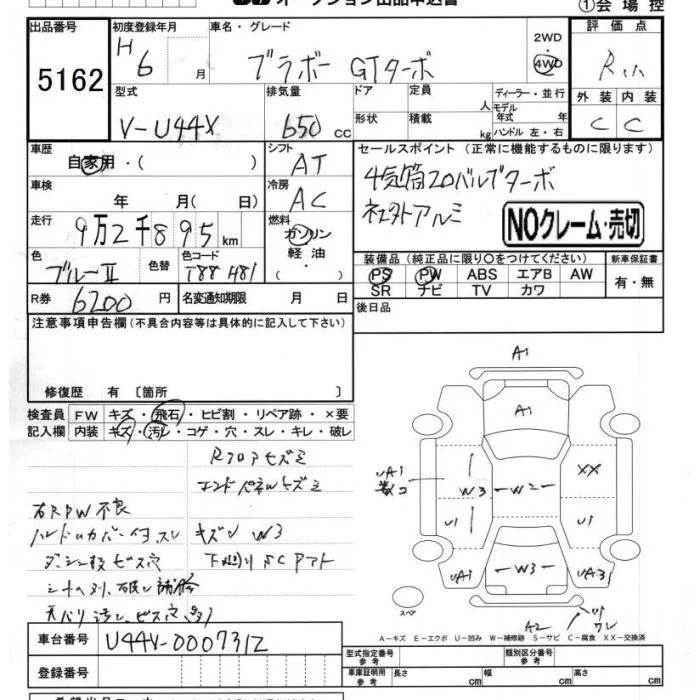 オークション出品申込書
①会場控
出品番号
5162
初度登録年月
H6 月
車名・グレード
ブラボー GTターボ
2WD
4WD
評価点
R
型式
V-U44X
排気量
650 cc
ドア
定員
人
形状
積載
kg
ディーラー・並行
モデル
年式 年
ハンドル 左・右
外装
内装
C
C
車歴
自家用・( )
シフト
AT
セールスポイント (正常に機能するものに限ります)
4気筒20バルブターボ
社外アルミ
NOクレーム・売切
車検
年 月( 日)
冷房
AC
走行
9万2千895 km
燃料
ガソリン
軽油
( )
色
ブルーII
色替
色コード
T88 481
装備品 (純正品に限り○をつけてください)
新車保証書
PS
PW
ABS
エアB
AW
SR
ナビ
TV
カワ
有・無
R券
6200 円
名変通知期限
月 日
後日品
注意事項申告欄(不具合内容等は具体的に記入して下さい)
修復歴 有 〔箇所 〕
検査員
記入欄
FW
キズ・飛石・ヒビ割・リペア跡・×要
内装
キズ・汚レ・コゲ・穴・スレ・キレ・破レ
Rフロアヒズミ
エンドパネルヒズミ
右RPW不良
ハンドルカバー付スレ
キズ W3
ダッシュ板ビス穴
下廻り SC アト
A1
A1
UA1
数コ
W3
W2
XX
U1
U1
UA1
W3
UA3
スペア
A2
U1
ワレ
A−キズ E−エクボ U−凹み W−補修跡 S−サビ C−腐食 XX−交換済
車台番号
U44V-0007312
登録番号
型式指定番号
参考
類別区分番号
参考
車庫証明用
参考
長さ
cm
幅
cm
高さ
cm